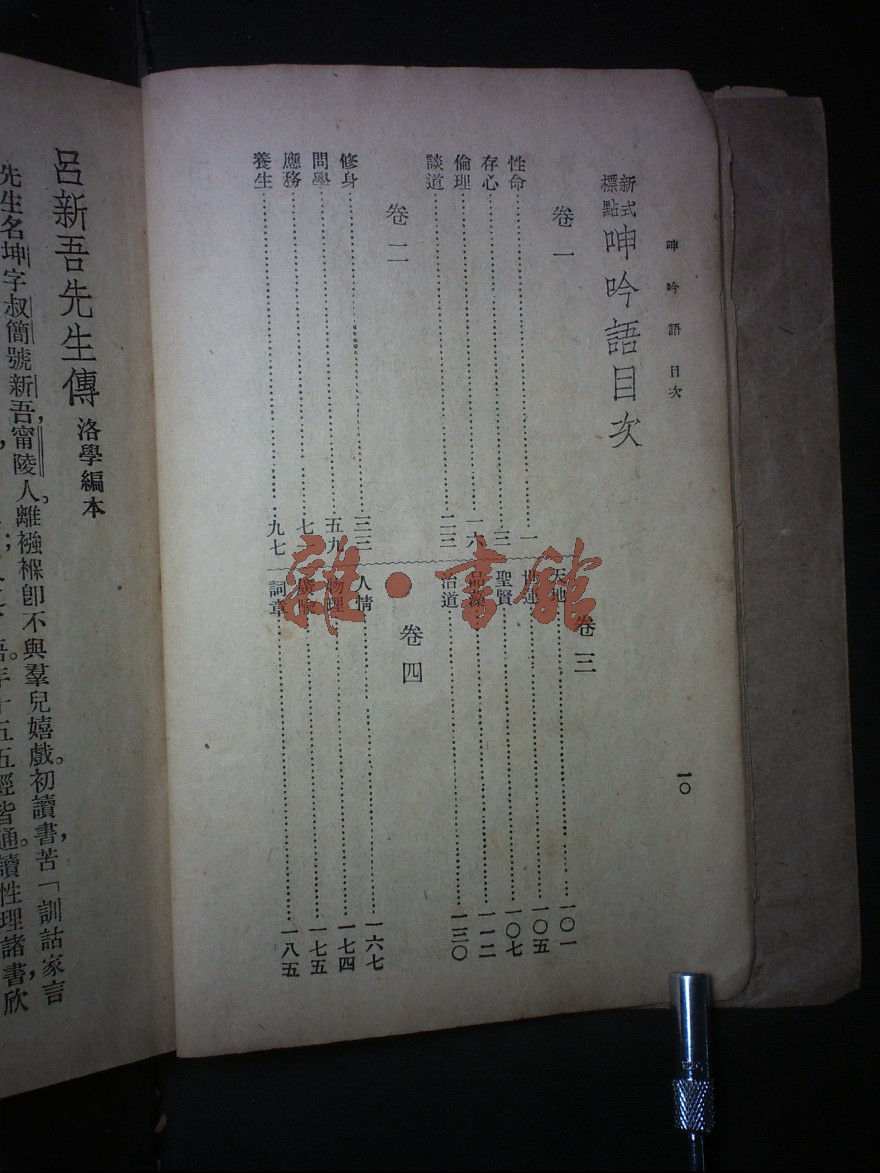 呻吟語 目次
一〇
新式
標點
呻吟語目次
卷一
性命 一
存心 三
倫理 一六
談道 二三
卷二
修身 三三
問學 五九
應務 七一
養生 九七
卷三
天地 一〇一
世運 一〇五
聖賢 一〇七
品藻 一一二
治道 一三〇
卷四
人情 一六七
物理 一七四
廣喻 一七五
詞章 一八五
雜·書館
呂新吾先生傳 洛學編本
先生名坤字叔簡號新吾,甯陵人。離襁褓卽不與羣兒嬉戲。初讀書,苦「訓詁家言
年十五五經皆通。讀性理諸書,欣